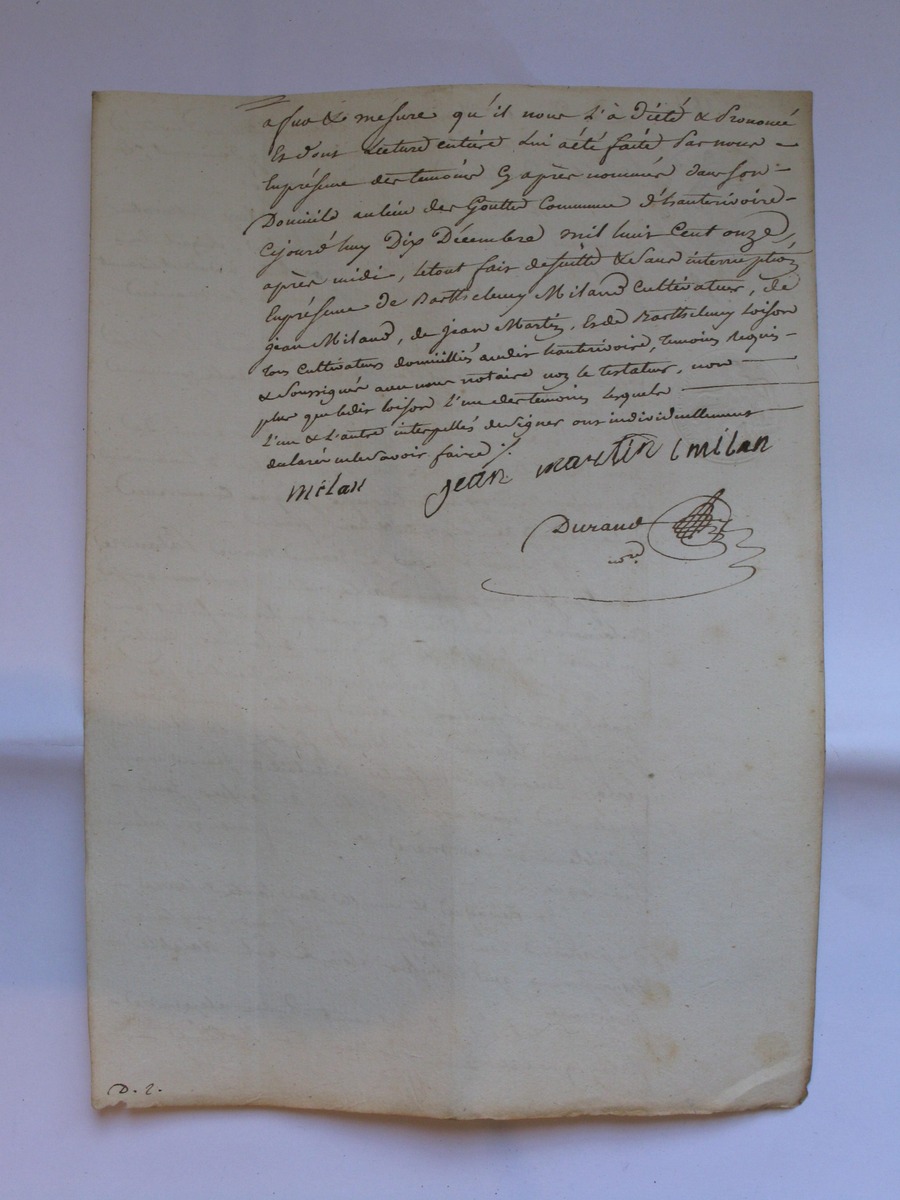 a fur & mesure qu'il nous l'à dicté & Prononcé
Et dont Lecture entière lui a été faite Par nous —
En présence des temoins Cy après nommés dans son —
Domicile au lieu des Gouttes Commune d'hauterivoire —
Cejourd'huy Dix Décembre mil huit Cent onze,
après midi, le tout fait de suitte & Sans interruption
En présence de Barthelemy Miland Cultivateur, de
jean Miland, de jean Martin, Et de Barthelemy loison
tous Cultivateurs domiciliés audit hauterivoire, temoins Requis —
& Soussignés avec nous notaire non le testateur, non —
plus que ledit loison l'un des temoins lesquels —
L'un & L'autre interpellés de Signer ont individuellement
declaré ne le Savoir faire ./.
milan jean martin milan
Durand
nre
D. 2.